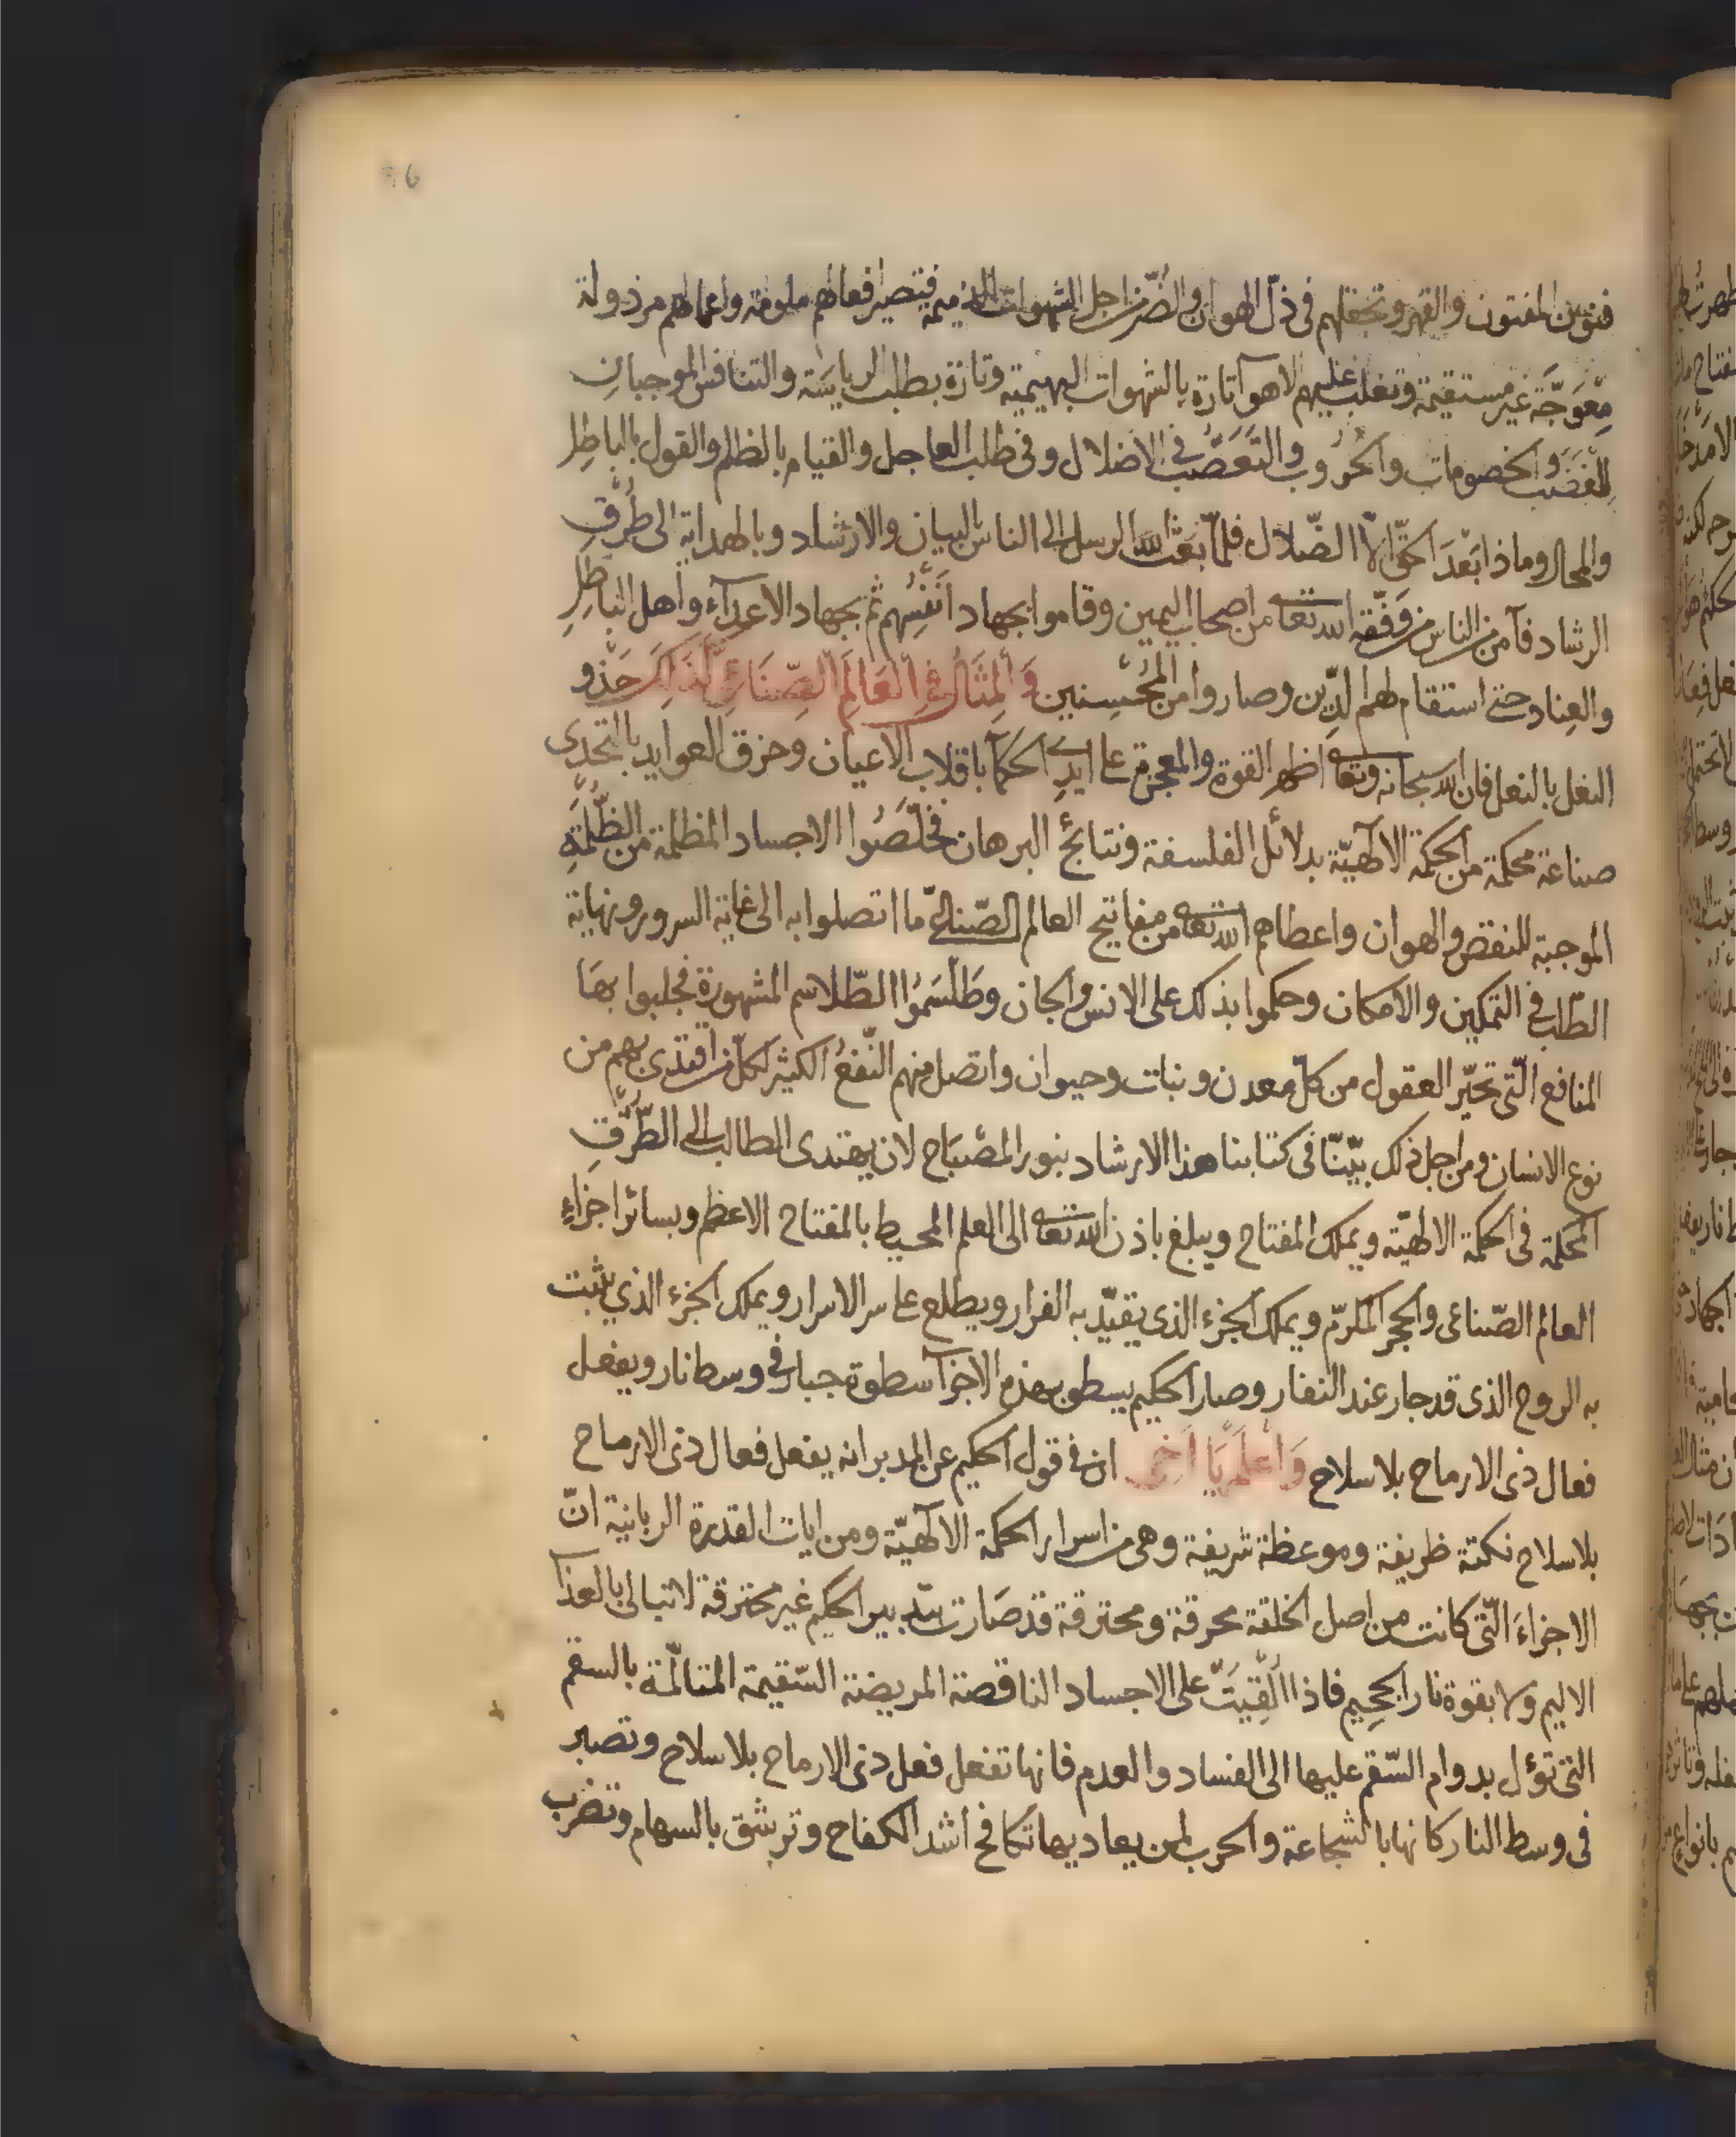 فنون المفتون والقهر وتجعلهم فى ذلّ الهوان والضّر من اجل الشهوات الذميمة فتصير افعالهم ملومة واعمالهم مرذولة
معوجّة غير مستقيمة وتغلب عليهم الاهوآ تارة بالشهوات البهيمية وتارة بطلب الرياسَة والتنافس الموجبان
للغضب والخصومات والحُرُوب والتَعَصُّب فى الاضلال وفى طلب العاجل والقيام بالظلم والقول بالباطِل
والمحال وماذا بَعْدَ الحقّ الاّ الضّلال فلمّا بَعَثَ الله الرسل الى الناس بالبيان والارشاد وبالهداية الى طُرُقِ
الرشاد فآمن من الناس من وَفَّقه الله تعا من اصحاب اليمين وقاموا بجهاد اَنْفُسِهم ثم بجهاد الاعدآء وأهل الباطِلِ
والعِناد حتى استقام لهم الدِّين وصاروا من المُحْسِنين وَالمِثَالُ فى العَالَمِ الصِّنَاعِىِّ كَذَلِكَ حَذْو
النعل بالنعل فان الله سبحانه وتعا اظهر القوة والمعجزة على ايدى الحكمآ باقلاب الاعيان وخرق العوايد بالتحدى
صناعة محكمة من الحكمة الالٓهيّة بدلائل الفلسفة ونتائج البرهان فخلّصُوا الاجساد المظلمة من الظُّلْمَةِ
الموجبة للنقض والهوان واعطاهم الله تعا من مفاتيح العالم الصّناعىّ ما اتصلوا به الى غاية السرور ونهاية
الطّلب فى التمكين والامكان وحكموا بذلك على الانس والجان وطَلْسَمُوا الطّلاسم المشهورة فجلبوا بهَا
المنافع الّتى تحيّر العقول من كلّ معدن ونبات وحيوان واتصل منهم النّفعُ الكثير لكلّ من اقتدى بهم من
نوع الانسان ومن اجل ذلك بيّنّا فى كتابنا هذا الارشاد بنور المصْبَاح لان يهتدى الطالب الى الطُّرُقِ
المحكمة فى الحكمة الالهيّة ويملك المفتاح ويبلغ باذن الله تعا الى العلم المحيط بالمفتاح الاعظم وبسائر اجزاءِ
العالم الصّناعى والحجر المكرّم ويملك الجزء الذى يقيّد به الفرار ويطلع على سر الاسرار ويملك الجزء الذي يثبت
به الروح الذى قد جار عند النفار وصار الحكيم يسطو بهذه الاجزآ سطوة جبار فى وسط نار ويفعل
فعال ذى الارماح بلا سلاح وَاعْلَمْ يَا اَخِى ان فى قول الحكيم عن المدبر انه يفعل فعال ذى الارماح
بلا سلاح نكتة ظريفة وموعظة شريفة وهى من اسرار الحكمة الالٓهيّة ومن ايات القدرة الربانية انّ
الاجزاءَ الّتى كانت من اصل الخلقة محرقة ومحترقة قد صَارت بتدبير الحكيم غير محترقة لا تبالى بالعذآ
الاليم ولا بقوة نار الجحيم فاذا اُلْقِيَتْ على الاجساد الناقصة المريضة السّقيمة المتالّمة بالسقم
التى تؤل بدوام السّقم عليها الى الفساد والعدم فانها تفعل فعل ذى الارماح بلا سلاح وتصبر
فى وسط النار كانها بالشجاعة والحرب لمن يعاديها تكافح اشد الكفاح وترشق بالسهام وتضرب